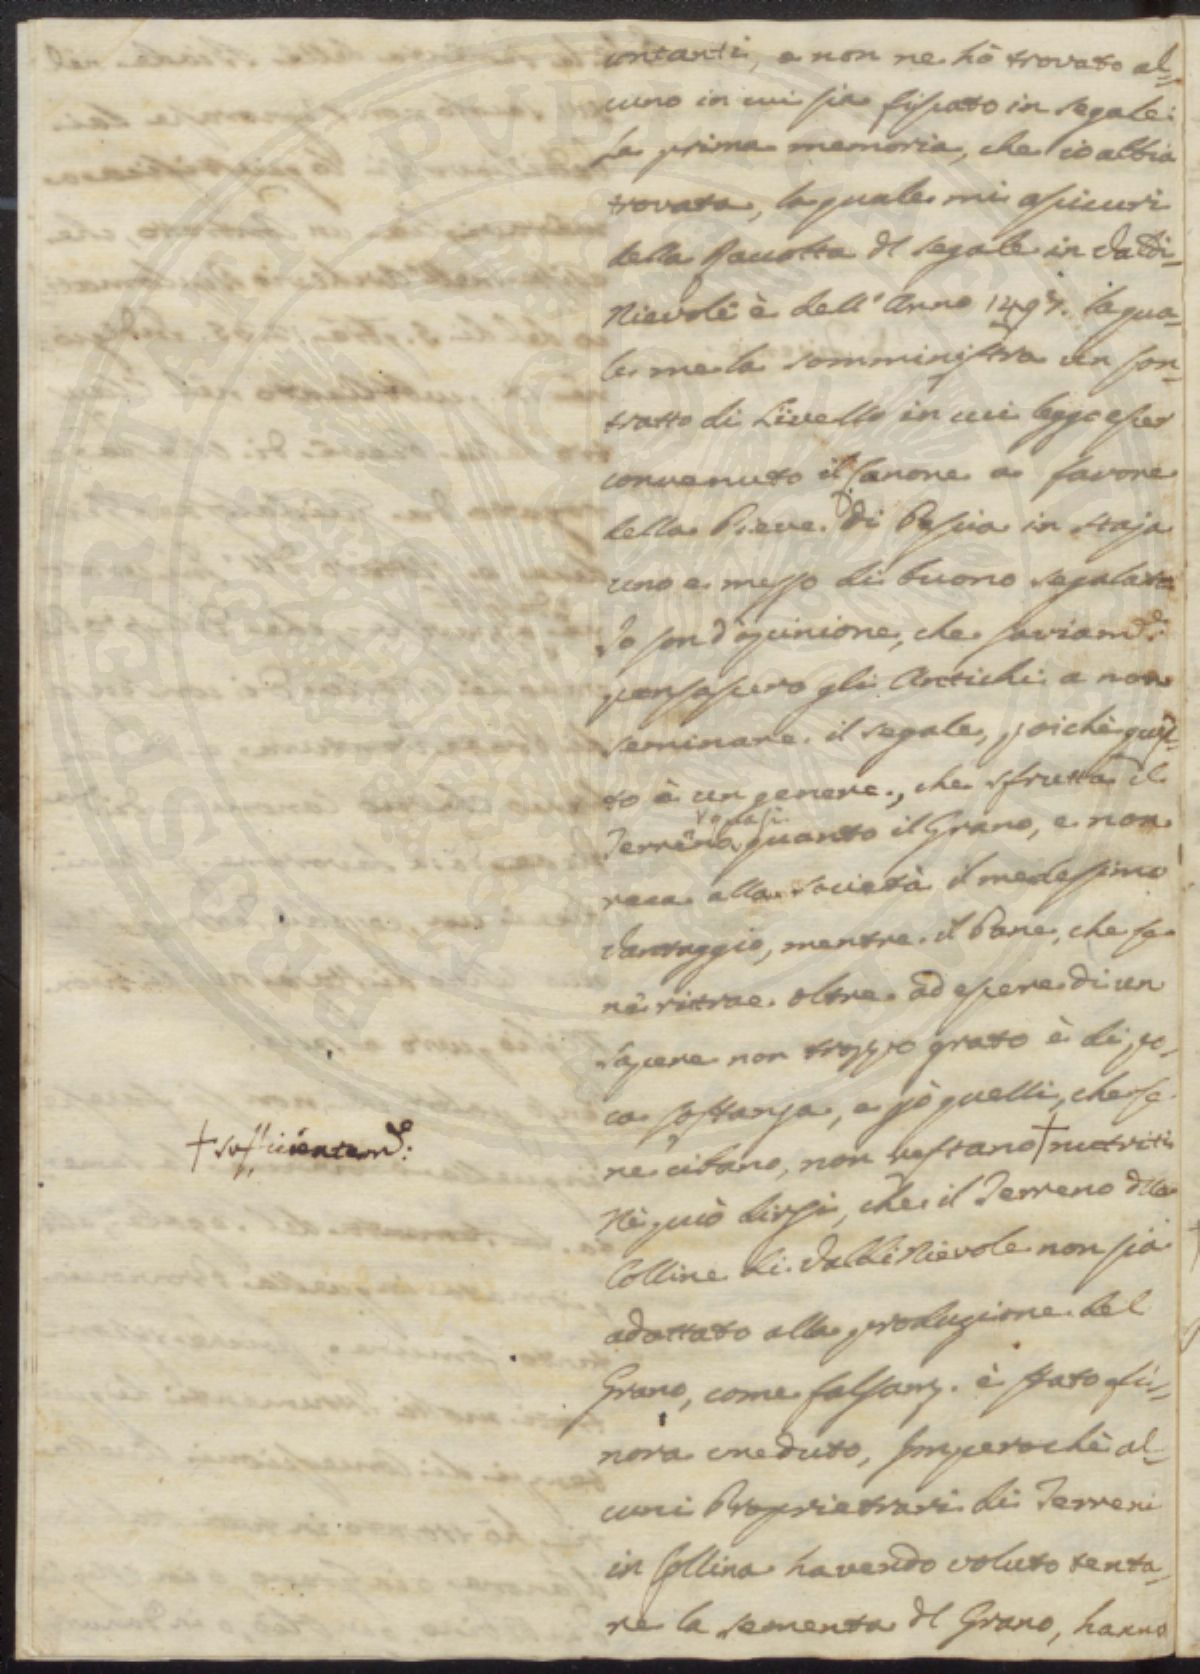 contanti, e non ne hò trovato al-
cuno in cui sia fissato in segale.
La prima memoria, che io abbia
trovata, la quale mi assicuri
della Raccolta dl segale in Valdi-
Nievole è dell' Anno 1497. la qua-
le me la somministra un Con-
tratto di Livello in cui leggo esser
convenuto il Canone a favore
della Pieve di Pescia in staja
uno e mezzo di buono segalato
Io son d'opinione, che saviamte:
pensassero gli Antichi a non
seminare il segale, poichè ques-
to è un genere, che sfrutta il
Terreno quasi quanto il Grano, e non
reca alla società il medesimo
Vantaggio, mentre il Pane, che se
ne ritrae oltre ad essere di un
sapere non troppo grato è di po-
ca sostanza, e pò quelli, che se
ne cibano, non restano + nutriti
+ sufficientemte:
Nè può dirsi, che il Terreno dlle
Colline di Valdi Nievole non sia
adattato alla produzione del
Grano, come falsamte. è stato fi-
nora creduto, Imperochè al-
cuni Proprietari di Terreni
in Collina havendo voluto tenta-
re la sementa dl Grano, hanno